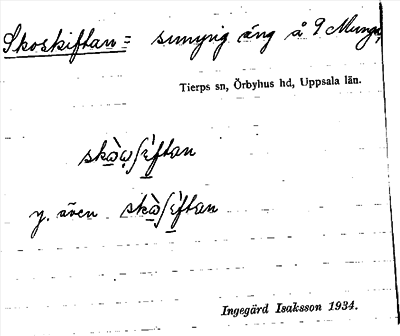 Skoskiftan = sumpig äng å 9 Munga,
Tierps sn, Örbyhus hd, Uppsala län.
skò̱ω̣ʃì̱ftan
y. även skò̱ʃì̱ftan
Ingegärd Isaksson 1934.